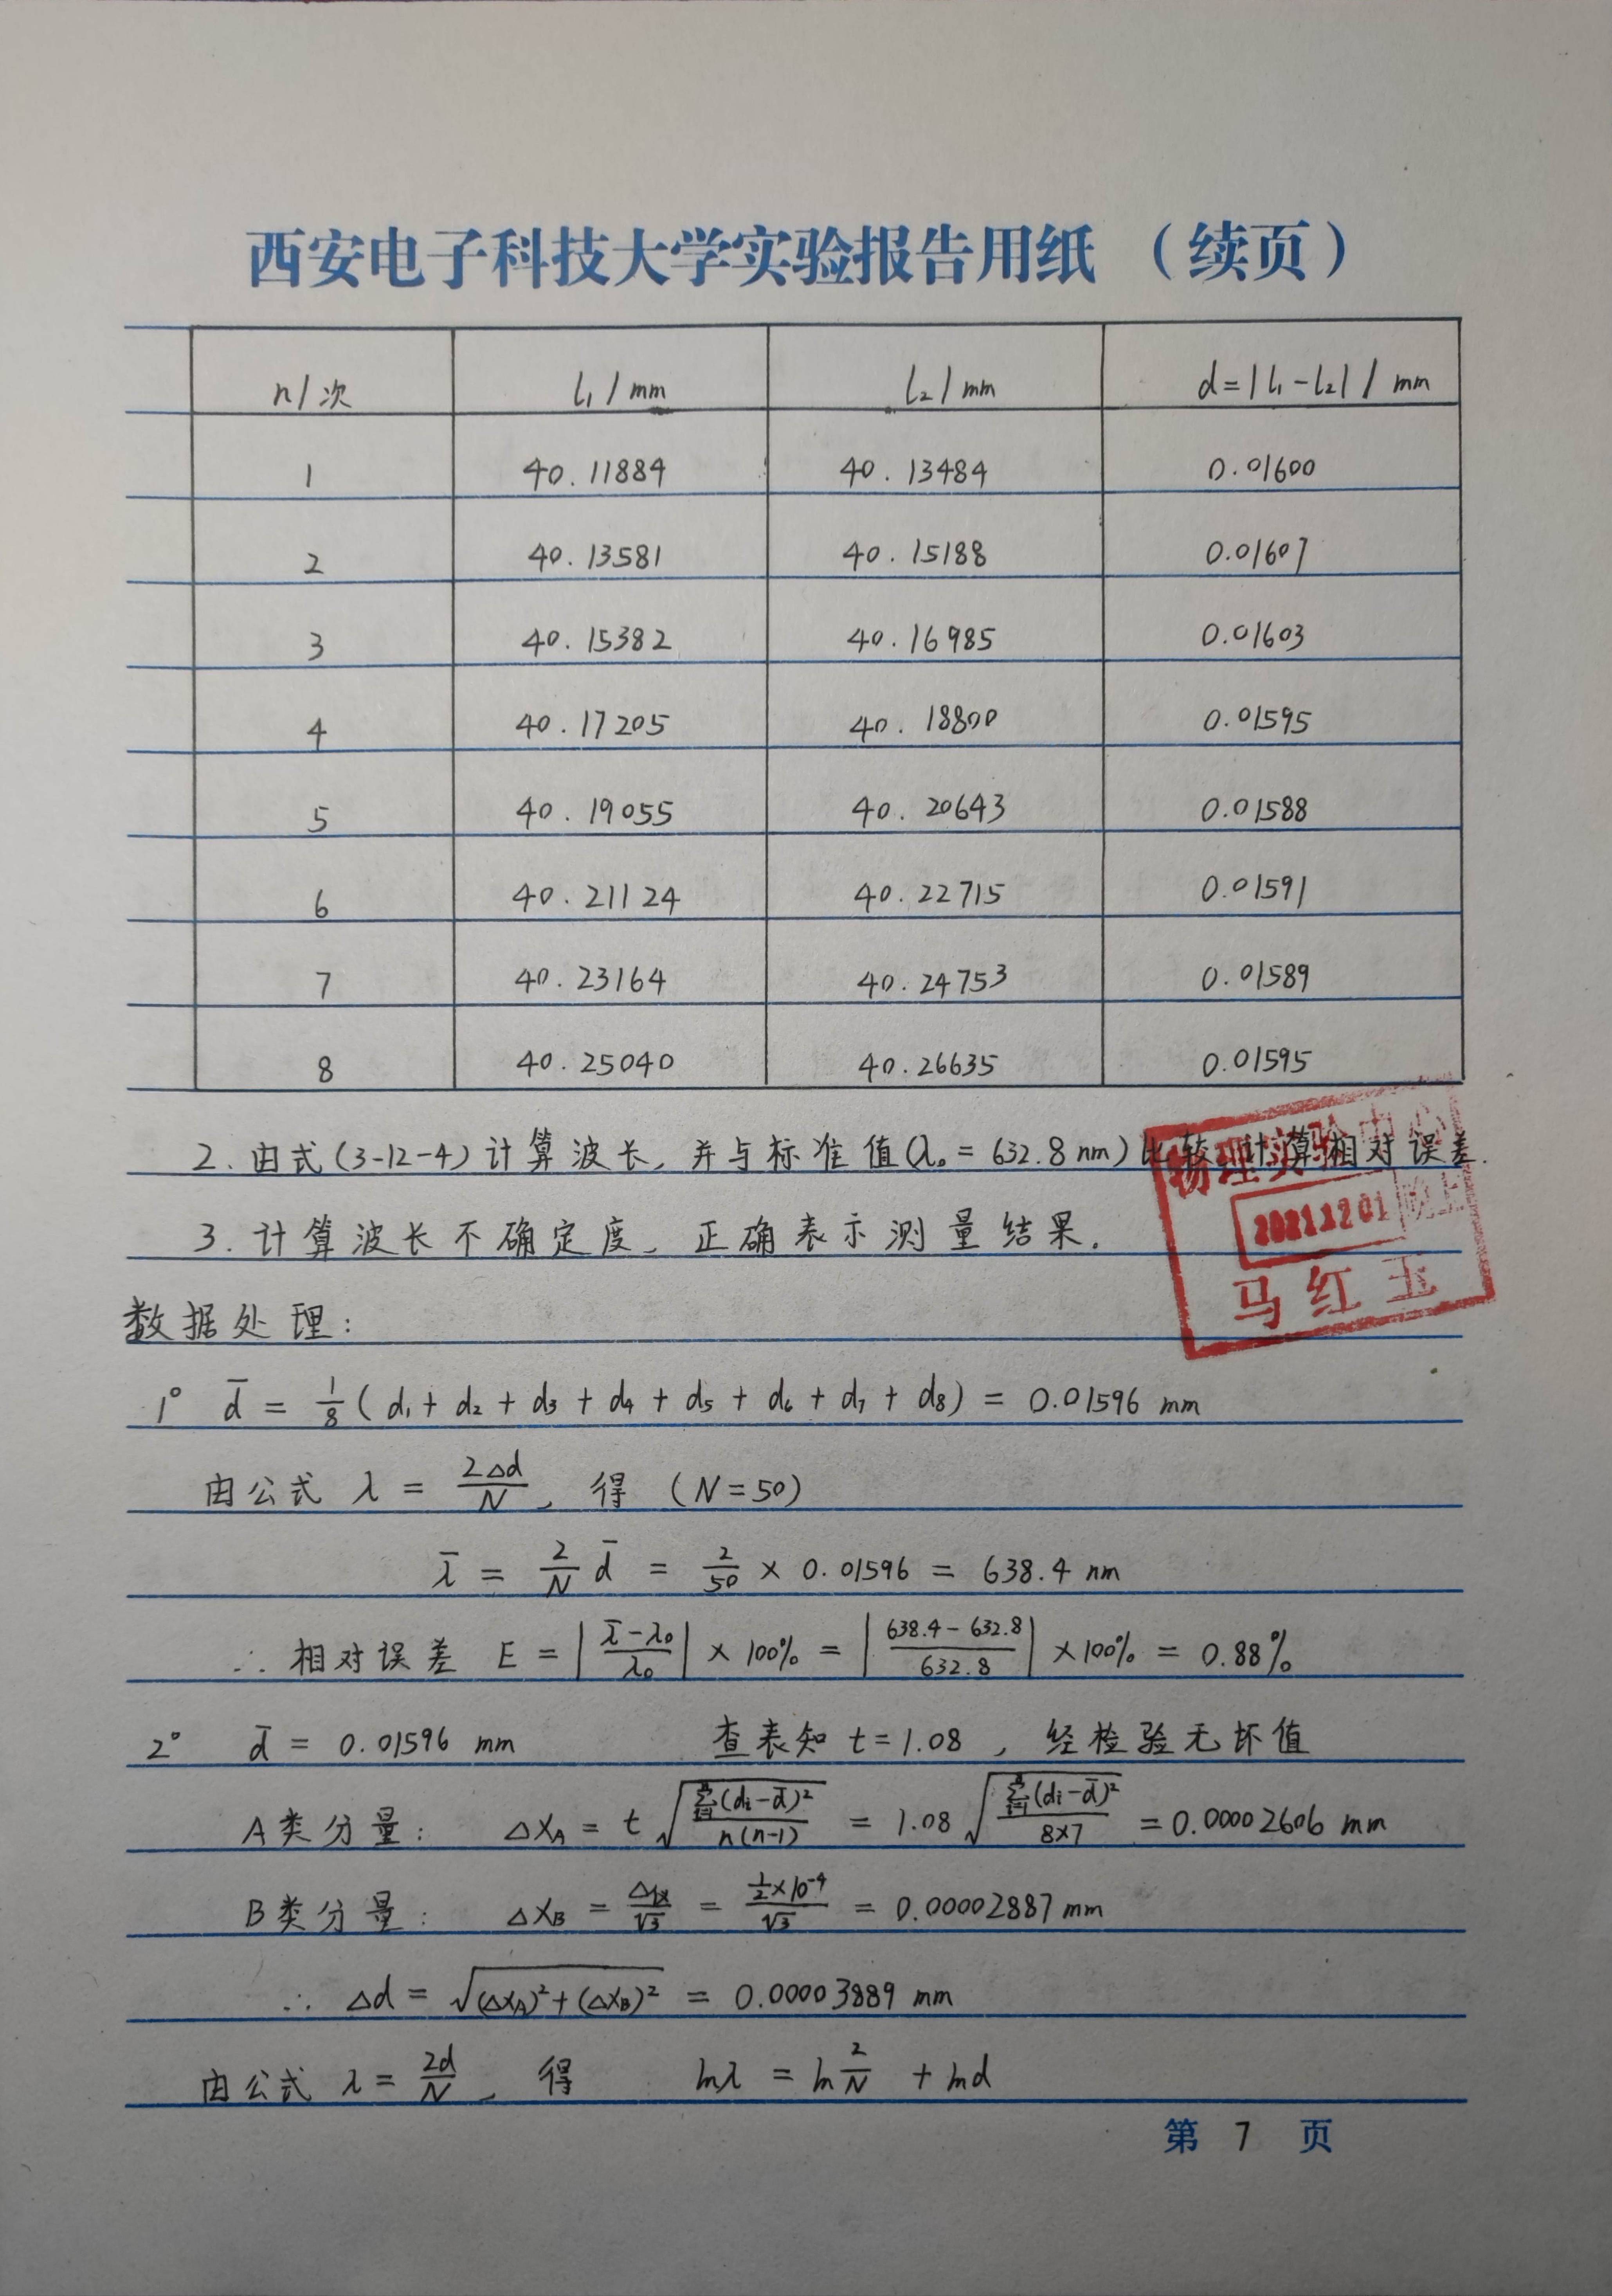 西安电子科技大学实验报告用纸 (续页)
n/次 l₁/mm l₂/mm d=|l₁-l₂|/mm
1 40.11884 40.13484 0.01600
2 40.13581 40.15188 0.01607
3 40.15382 40.16985 0.01603
4 40.17205 40.18800 0.01595
5 40.19055 40.20643 0.01588
6 40.21124 40.22715 0.01591
7 40.23164 40.24753 0.01589
8 40.25040 40.26635 0.01595
2. 由式(3-12-4)计算波长, 并与标准值(λ₀ = 632.8 nm)比较, 计算相对误差.
3. 计算波长不确定度、正确表示测量结果.
物理实验中心
20211201 晚上
马红玉
数据处理:
1° d̄ = 1/8 ( d₁ + d₂ + d₃ + d₄ + d₅ + d₆ + d₇ + d₈ ) = 0.01596 mm
由公式 λ = 2Δd/N, 得 (N=50)
λ̄ = 2/N d̄ = 2/50 × 0.01596 = 638.4 nm
∴ 相对误差 E = |(λ̄-λ₀)/λ₀| × 100% = |(638.4-632.8)/632.8| × 100% = 0.88%
2° d̄ = 0.01596 mm 查表知 t=1.08 , 经检验无坏值
A类分量: ΔX_A = t √(Σⁿᵢ₌₁(dᵢ-d̄)²/n(n-1)) = 1.08 √(Σ⁸ᵢ₌₁(dᵢ-d̄)²/8×7) = 0.00002606 mm
B类分量: ΔX_B = Δ仪/√3 = ½×10⁻⁴/√3 = 0.00002887 mm
∴ Δd = √((ΔX_A)²+(ΔX_B)²) = 0.00003889 mm
由公式 λ = 2d/N, 得 lnλ = ln 2/N + lnd
第 7 页